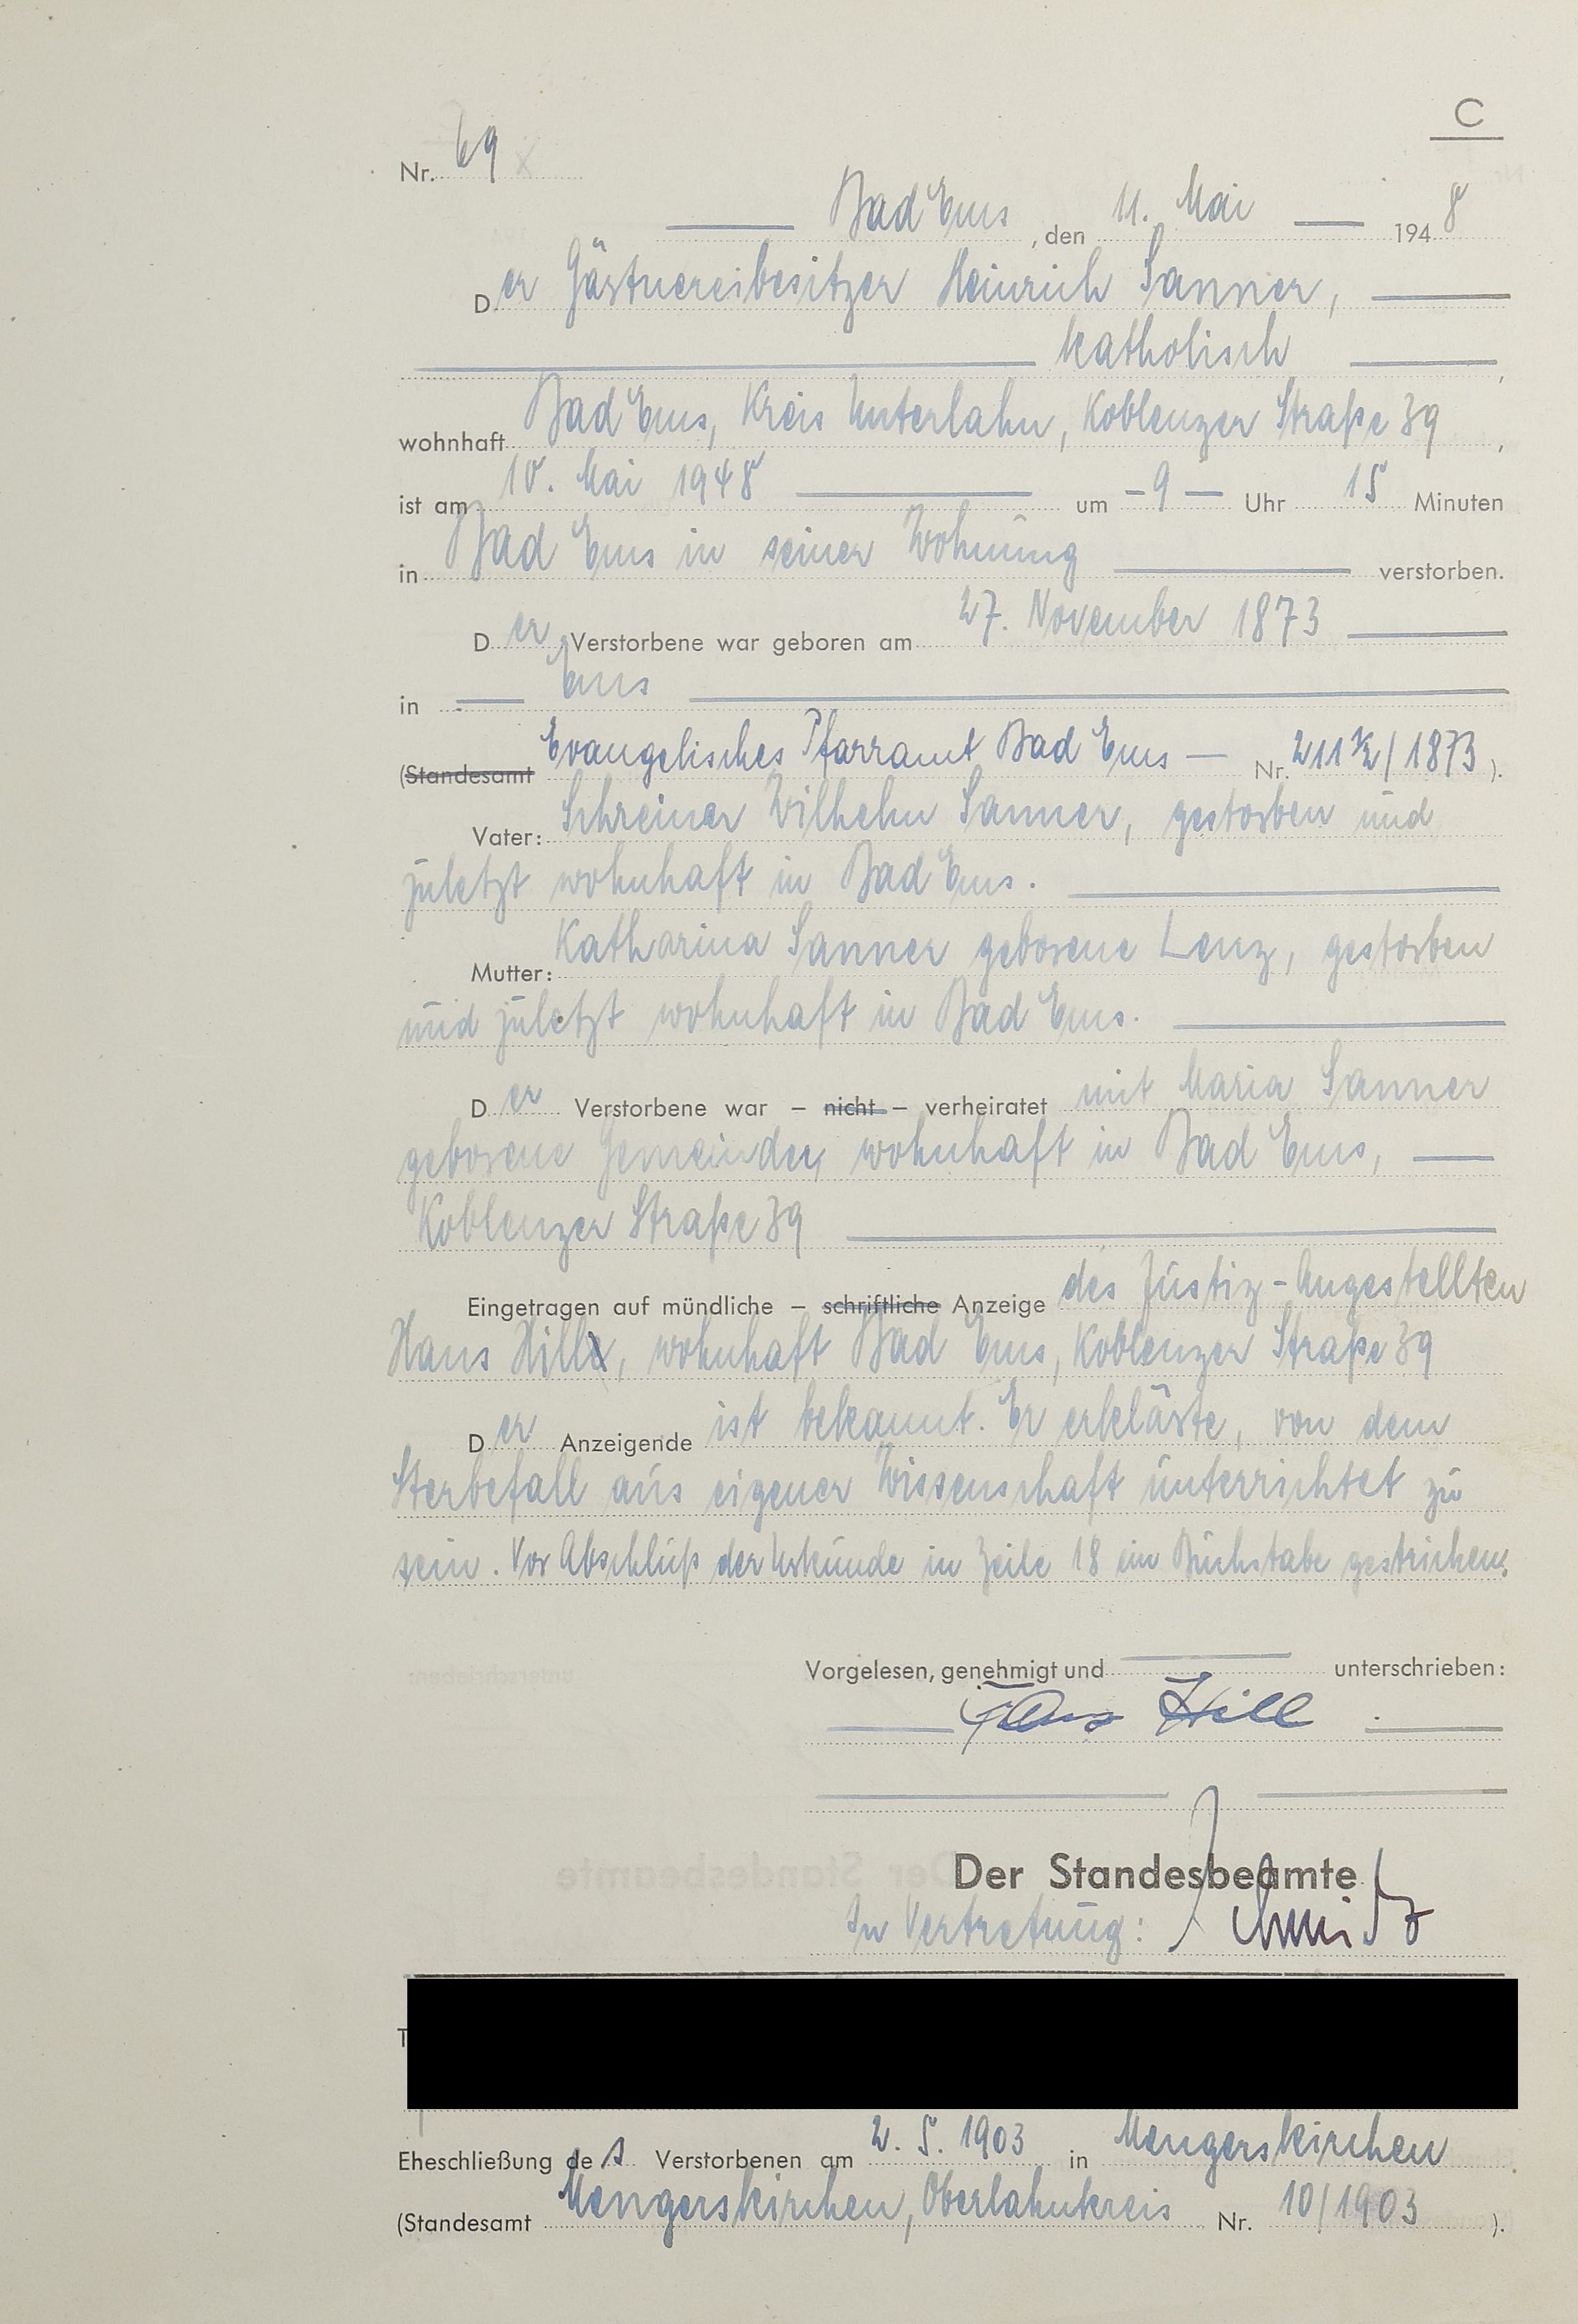 C
Nr. 69
Bad Ems, den 11. Mai 1948
Der Gärtnereibesitzer Heinrich Sanner,
katholisch,
wohnhaft Bad Ems, Kreis Unterlahn, Koblenzer Straße 39,
ist am 10. Mai 1948 um -9- Uhr 15 Minuten
in Bad Ems in seiner Wohnung verstorben.
Der Verstorbene war geboren am 27. November 1873
in Ems
(Standesamt Evangelisches Pfarramt Bad Ems — Nr. 211 ½/1873).
Vater: Schreiner Wilhelm Sanner, gestorben und
zuletzt wohnhaft in Bad Ems.
Mutter: Katharina Sanner geborene Lenz, gestorben
und zuletzt wohnhaft in Bad Ems.
Der Verstorbene war – nicht – verheiratet mit Maria Sanner
geborene Gemeinder, wohnhaft in Bad Ems,
Koblenzer Straße 39
Eingetragen auf mündliche – schriftliche Anzeige des Justiz-Angestellten
Hans Hill, wohnhaft Bad Ems, Koblenzer Straße 39
Der Anzeigende ist bekannt. Er erklärte, von dem
Sterbefall aus eigener Wissenschaft unterrichtet zu
sein. Vor Abschluß der Urkunde in Zeile 18 ein Buchstabe gestrichen.
Vorgelesen, genehmigt und unterschrieben:
Hans Hill
Der Standesbeamte
In Vertretung: Schmidt
Eheschließung des Verstorbenen am 2. 5. 1903 in Mengerskirchen
(Standesamt Mengerskirchen, Oberlahnkreis Nr. 10/1903).